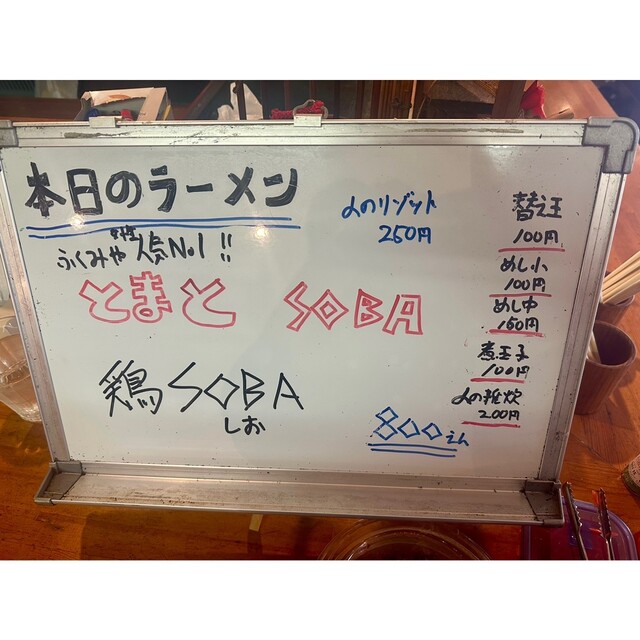 本日のラーメン
ふくみや 女性 人気No1!!
とまと SOBA
鶏SOBA
しお
〆のリゾット
250円
替え玉
100円
めし小
100円
めし中
150円
煮玉子
100円
〆の雑炊
200円
800えん